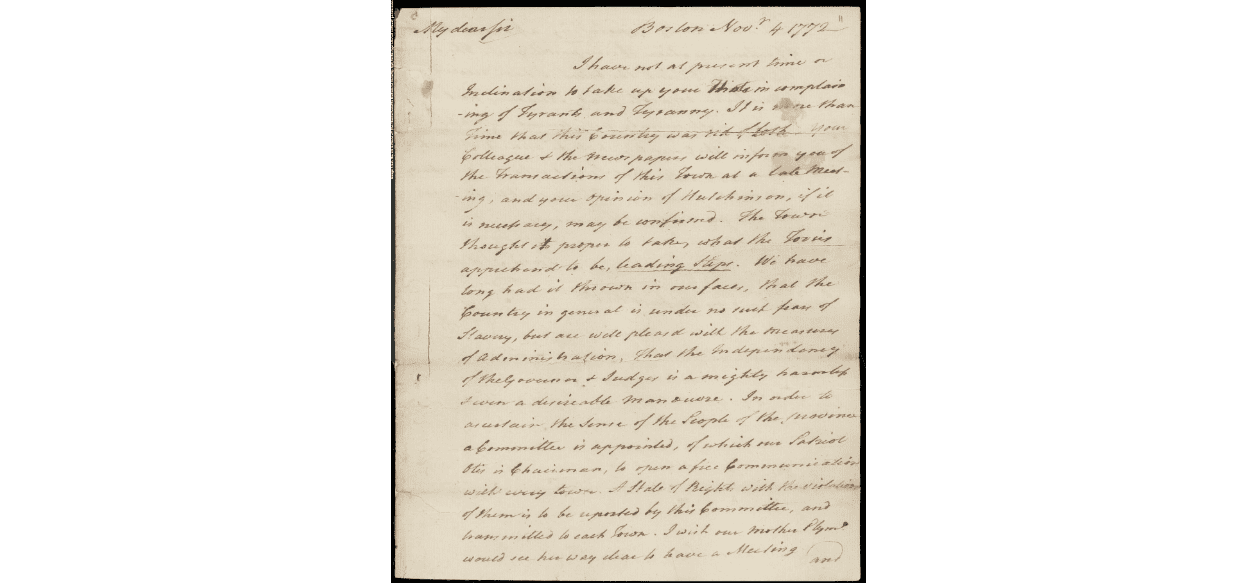 My dear sir Boston Nov.r 4 1772
I have not at present time or
Inclination to take up your in complain
-ing of Tyrants and Tyranny. It is more than
Time that this Country was rid of both Your
Colleague & the News papers will inform you of
the Transactions of this Town at a late Meet-
-ing, and your opinion of Hutchinson, if it
is necessary, may be confirmed. The Town
thought it proper to take, what the Tories
apprehend to be, leading Steps. We have
long had it thrown in our faces, that the
Country in general is under no such fears of
Slavery, but are well pleasd with the measures
of Administration, That the Independency
of the Governor & Judges is a mighty harmless
& even a desireable Manœuvre. In order to
ascertain the Sense of the People of the province
a Committee is appointed, of which our Patriot
Otis is Chairman, to open a free Communication
with every town. A State of Rights with the violations
of them is to be reported by this Committee, and
transmitted to each Town. I wish our mother Plymo
would see her way clear to have a Meeting
and